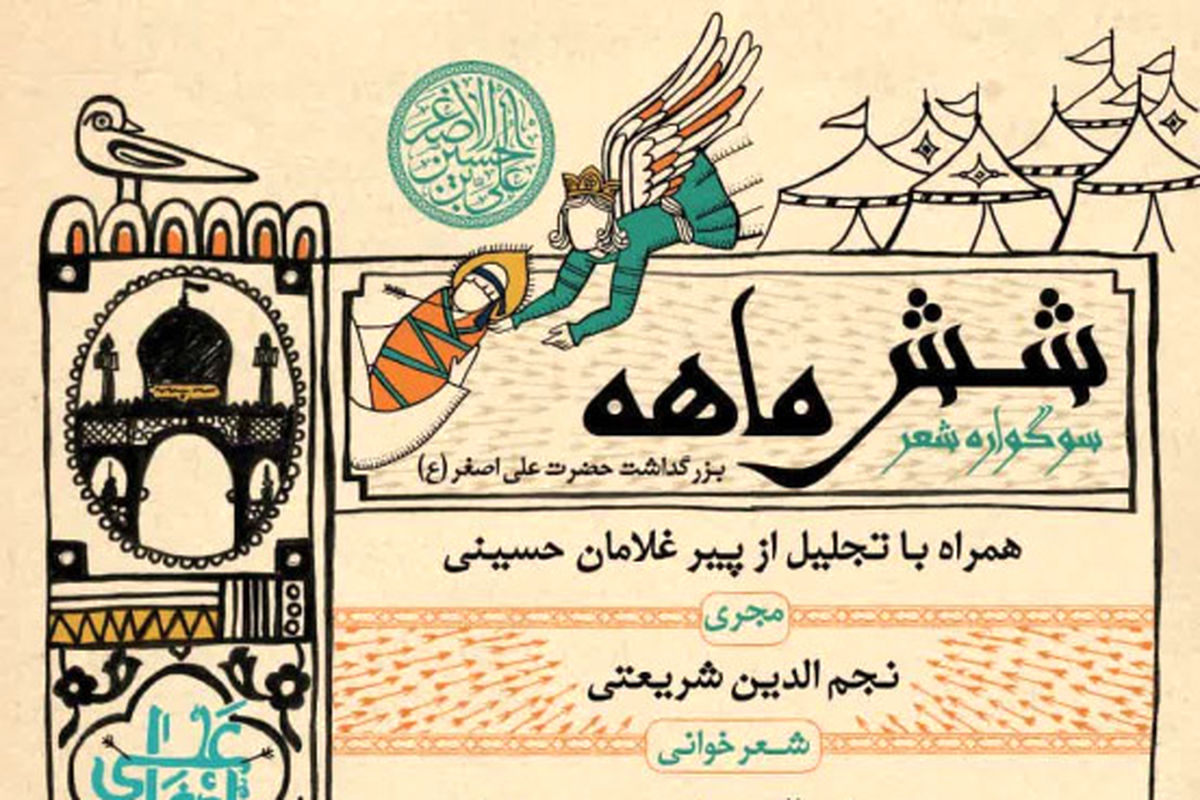 یا علی بن الحسین الاصغر
شش ماهه
سوگواره شعر
بزرگداشت حضرت علی اصغر (ع)
همراه با تجلیل از پیر غلامان حسینی
مجری
نجم الدین شریعتی
شعر خوانی
علی